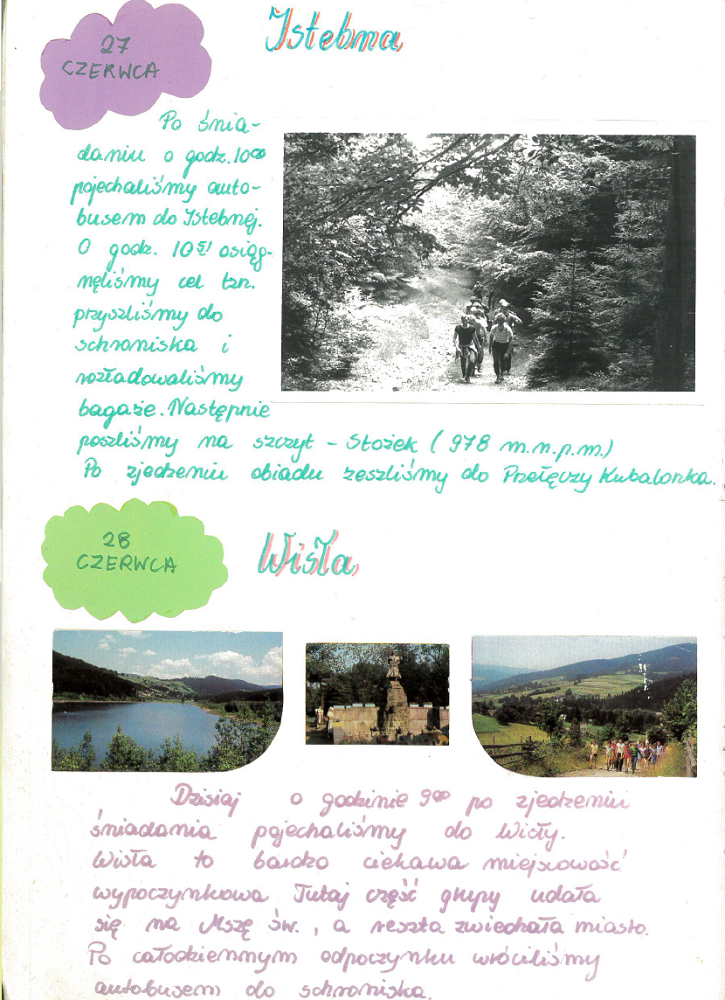 Istebna
27
CZERWCA
Po śnia-
daniu o godz. 10⁰⁰
pojechaliśmy auto-
busem do Istebnej.
O godz. 10⁵¹ osiąg-
nęliśmy cel tzn.
przyszliśmy do
schroniska i
rozładowaliśmy
bagaże. Następnie
poszliśmy na szczyt - Stożek (978 m.n.p.m.)
Po zjedzeniu obiadu zeszliśmy do Przełęczy Kubalonka.
28
CZERWCA
Wisła
Dzisiaj o godzinie 9⁰⁰ po zjedzeniu
śniadania pojechaliśmy do Wisły.
Wisła to bardzo ciekawa miejscowość
wypoczynkowa. Tutaj część grupy udała
się na Mszę św., a reszta zwiedzała miasto.
Po całodziennym odpoczynku wróciliśmy
autobusem do schroniska.